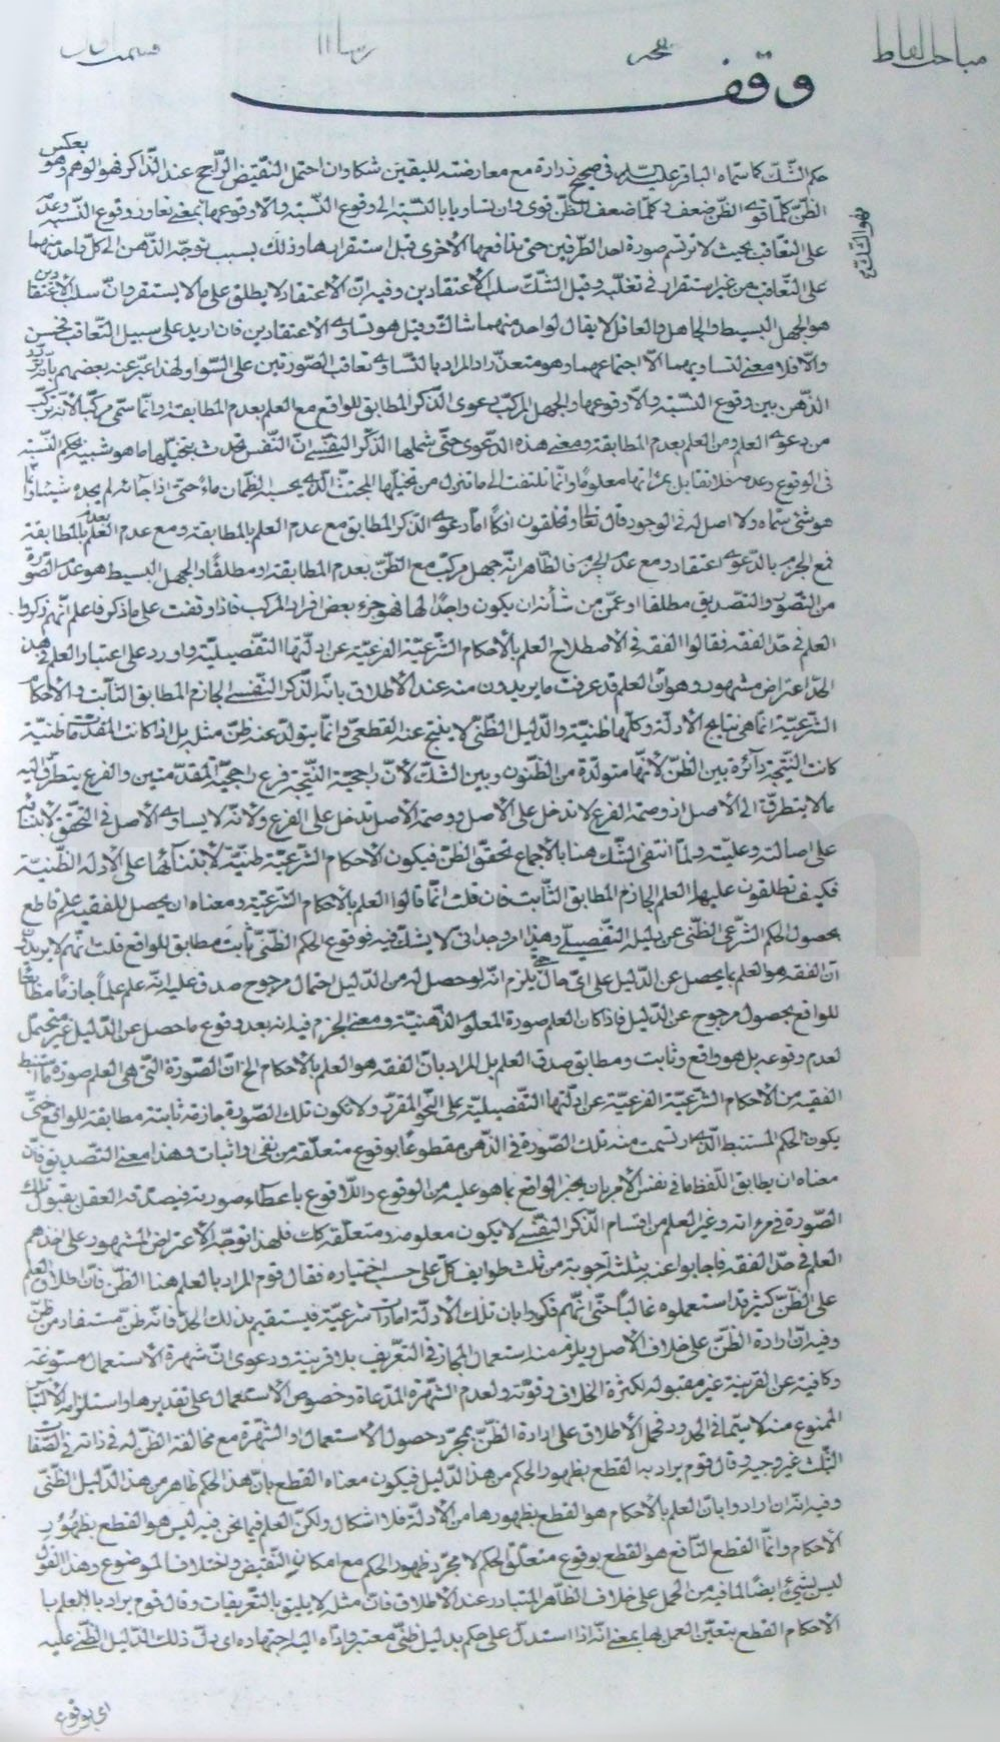 مباحث الالفاظ
وقف
حكم الشك كما سماه الباقر عليه السلام في صحيح زرارة مع معارضته لليقين شكا وان احتمل النقيض الراجح عند الذاكر فهو الوهم وهو بعكس
الظن كلما قوى الظن ضعف وكلما ضعف الظن قوى وان تساويا بالنسبة الى وقوع النسبة والا وقوعها بمعنى تعاور وقوع النسبة وعدمه
فهو الشك
على التعاقب بحيث لا ترتسم صورة احد الطرفين حتى تدافعها الاخرى قبل استقرارها وذلك بسبب توجه الذهن الى كل واحد منهما
على التعاقب من غير استقرار في تغلبه وقيل الشك سلب الاعتقادين وفيه ان الاعتقاد لا يطلق على ما لا يستقر وان سلب الاعتقادين
هو الجهل البسيط والجاهل والغافل لا يقال لواحد منهما شاك وقيل هو تساوى الاعتقادين فان اريد على سبيل التعاقب فحسن
والا فلا معنى لتساويهما الا اجتماعهما وهو متعذر اذ المراد بالتساوى تعاقب الصورتين على السواء ولهذا عبر عنه بعضهم بانه تردد
الذهن بين وقوع النسبة والا وقوعها والجهل المركب دعوى الذكر المطابق للواقع مع العلم بعدم المطابقة وانما سمى مركبا لانه تركب
من دعوى العلم ومن العلم بعدم المطابقة ومعنى هذه الدعوى حتى شملها الذكر النفسى ان النفس تحدث بتخيلها ما هو شبيه بحكم النسبة
في الوقوع وعدمه فلا تقابل بمرآتها معلوما وانما تلتفت الى ما تنزل من تخيلها المجتث الذى يحسبه الظمآن ماء حتى اذا جائه لم يجده شيئا وانما
هو شئ سماه ولا اصل له في الوجود قال تعالى وتخلقون افكا اما دعوى الذكر المطابق مع عدم العلم بالمطابقة ومع عدم العلم بعدم المطابقة
فمع الجزم بالدعوى اعتقاد ومع عدم الجزم فالظاهر انه جهل مركب مع الظن بعدم المطابقة او مطلقا والجهل البسيط هو عدم الصورة
من التصور والتصديق مطلقا او عمن من شأنه ان يكون واجدا لها فهو جزء بعض افراد المركب فاذا وقفت على ما ذكر فاعلم انهم ذكروا
العلم في حد الفقه فقالوا الفقه في الاصطلاح العلم بالاحكام الشرعية الفرعية عن ادلتها التفصيلية واورد على اعتبار العلم في هذا
الحد اعتراض مشهور وهو ان العلم قد عرفت ما يريدون منه عند الاطلاق بانه الذكر النفسى الجازم المطابق الثابت والاحكام
الشرعية انما هى نتايج الادلة وكلها ظنية والدليل الظنى لا ينتج عنه القطعى وانما يتولد عنه ظن مثله بل اذا كانت المقدمات ظنية
كانت النتيجة دآئرة بين الظن لانها متولدة من الظنون وبين الشك لان راجحية النتيجة فرع راجحية المقدمتين والفرع يتطرق اليه
ما لا يتطرق الى الاصل اذ وصمة الفرع لا تدخل على الاصل ووصمة الاصل تدخل على الفرع ولانه لا يساوى الاصل في التحقق لابتنائه
على اصالته وعليته ولما انتفى الشك هنا بالاجماع تحقق الظن فيكون الاحكام الشرعية ظنية لابتنآئها على الادلة الظنية
فكيف تطلقون عليها العلم الجازم المطابق الثابت فان قلت انما قالوا العلم بالاحكام الشرعية ومعناه ان يحصل للفقيه علم قاطع
بحصول الحكم الشرعى الظنى عن دليله التفصيلى وهذا امر وجدانى لا يشك فيه فوقوع الحكم الظنى ثابت مطابق للواقع قلت انهم لا يريدون
ان الفقه هو العلم بما يحصل عن الدليل على اى حال حتى يلزم انه لو حصل له من الدليل احتمال مرجوح صدق عليه انه علم علما جازما مطابقا
للواقع بحصول مرجوح عن الدليل فاذا كان العلم صورة المعلوم الذهنية ومعنى الجزم فيه انه بعد وقوع ما حصل عن الدليل غير محتمل
لعدم وقوعه بل هو واقع وثابت ومطابق صدق العلم بل المراد بان الفقه هو العلم بالاحكام الخ ان الصورة التى هى العلم صورة ما استنبط
الفقيه من الاحكام الشرعية الفرعية عن ادلتها التفصيلية على النحو المقرر ولا تكون تلك الصورة جازمة ثابتة مطابقة للواقع حتى
يكون الحكم المستنبط الذى ارتسمت منه تلك الصورة في الذهن مقطوعا بوقوع متعلقه من نفى واثبات وهذا معنى التصديق فان
معناه ان يطابق اللفظ ما في نفس الامر بان يخبر الواقع بما هو عليه من الوقوع واللاوقوع باعطآء صورته فيصدقه العقل بقبول تلك
الصورة في مرءاته وغير العلم من اقسام الذكر النفسى لا يكون معلومه ومتعلقه كك فلهذا توجه الاعتراض المشهور على اخذهم
العلم في حد الفقه فاجابوا عنه بثلثة اجوبة من ثلث طوايف كل على حسب اختياره فقال قوم المراد بالعلم هنا الظن فان اطلاق العلم
على الظن كثير قد استعملوه غالبا حتى انهم ذكروا بان تلك الادلة امارات شرعية فيستقيم بذلك الحد فانه ظن مستفاد من ظن
وفيه ان ارادة الظن على خلاف الاصل ويلزم منه استعمال المجاز في التعريف بلا قرينة ودعوى ان شهرة الاستعمال مسوغة
وكافية عن القرينة غير مقبولة لكثرة الخلاف وقوته ولعدم الشهرة المدعاة وخصوص الاستعمال على تقديرها واستلزامه الالتباس
الممنوع منه لا سيما في الحدود فحمل الاطلاق على ارادة الظن بمجرد حصول الاستعمال والشهرة مع مخالفة الظن له في ذاته في الصفات
الثلث غير وجيه وقال قوم يراد به القطع بظهور الحكم من هذا الدليل فيكون معناه القطع بان هذا الحكم ظاهر من هذا الدليل الظنى
وفيه انه ان ارادوا بان العلم بالاحكام هو القطع بظهورها من الادلة فلا اشكال ولكن العلم فيما نحن فيه ليس هو القطع بظهور
الاحكام وانما القطع النافع هو القطع بوقوع متعلق الحكم لا مجرد ظهور الحكم مع امكان النقيض واختلاف الموضوع وهذا القول
ليس بشئ ايضا لما فيه من الحمل على خلاف الظاهر المتبادر عند الاطلاق فان مثله لا يليق بالتعريفات وقال قوم يراد بالعلم با
لاحكام القطع بتعين العمل بها بمعنى انه اذا استدل على حكم بدليل ظنى معتبر واداه اليه اجتهاده اى دل ذلك الدليل الظنى عليه
اى بوقوع